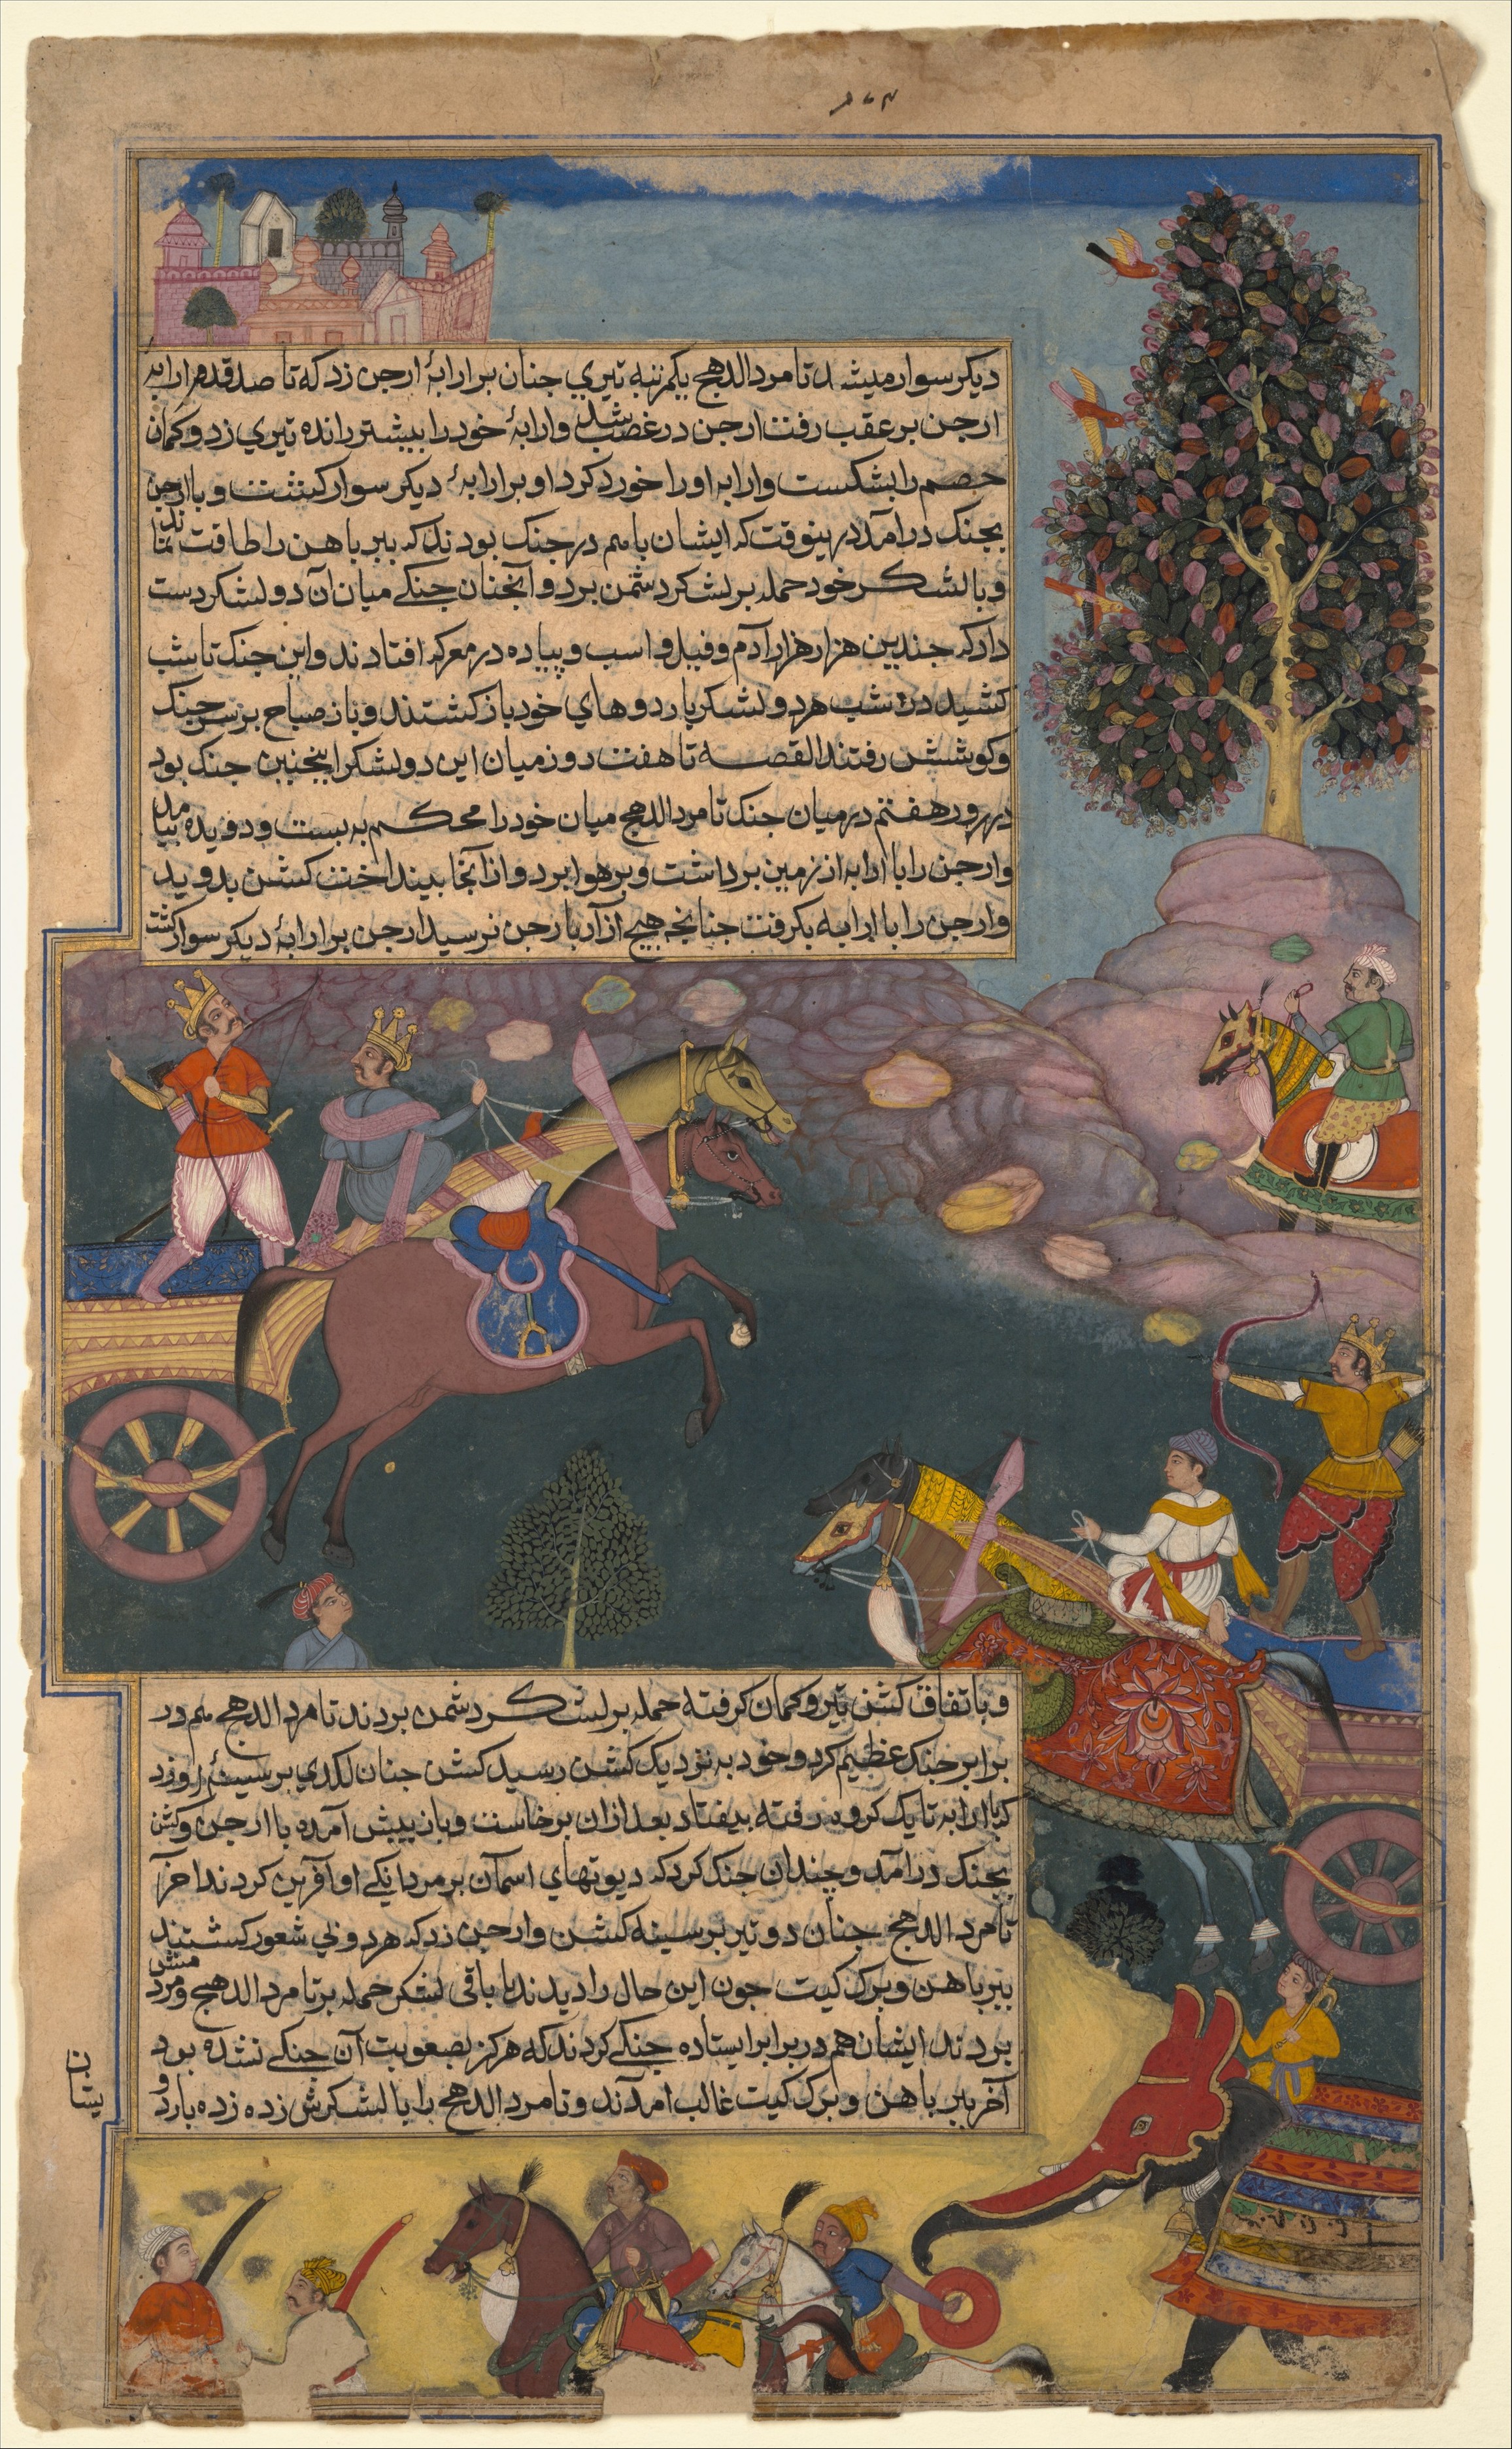 ۱۶۴
دیکر سوار میشد تا مردالدهج بیکمرتبه تیری جنان بر ارابهٔ ارجن زد که تا صد قدم ارابه
ارجن بر عقب رفت ارجن در غضب شد و ارابهٔ خود را بیشتر رانده تیری زد و کمان
خصم را بشکست و ارابه او را خورد کرد او بر ارابهٔ دیکر سوار کشت و با ارجن
بجنک درامد درینوقت که ایشان باهم در جنک بودند که ببر باهن را طاقت نماند
و با لشکر خود حمله بر لشکر دشمن برد و آنجنان جنکی میان آن دو لشکر دست
داد که جندین هزار هزار آدم و فیل و اسب و پیاده در معرکه افتادند و این جنک تا شب
کشید در شب هر دو لشکر باردوهای خود باز کشتند و باز صباح بر سر جنک
و کوشش رفتند القصه تا هفت روز میان این دو لشکر اینجنین جنک بود
در روز هفتم در میان جنک تا مردالدهج میان خود را محکم به بست و دویده بیامد
و ارجن را با ارابه از زمین برداشت و بر هوا برد و از آنجا بینداخت کشن بدوید
و ارجن را با ارابه بکرفت جنانجه هیچ ازار بارجن نرسید ارجن بر ارابهٔ دیکر سوار کشت
و باتفاق کشن تیر و کمان کرفته حمله بر لشکر دشمن بردند تا مردالدهج هم در
برابر جنک عظیم کرد و خود به نزدیک کشن رسید کشن جنان لکدی بر سینهٔ او زد
که با ارابه تا یک کروه رفته بیفتاد بعد ازان برخاست و باز پیش آمده با ارجن و کشن
بجنک درامد و چندان جنک کرد که دیوتهای اسمان بر مردانکی او آفرین کردند آخر
تا مردالدهج جنان دو تیر بر سینه کشن و ارجن زد که هر دو بی شعور کشتند
ببر باهن و برک کیت جون این حال را دیدند با باقی لشکر حمله بر تا مردالدهج و مردمش
بردند ایشان هم در برابر ایستاده جنکی کردند که هرکز بصعوبت آن جنکی نشده بود
آخر ببر باهن و برک کیت غالب امدند و تا مردالدهج را با لشکرش زده زده باردو
یشان